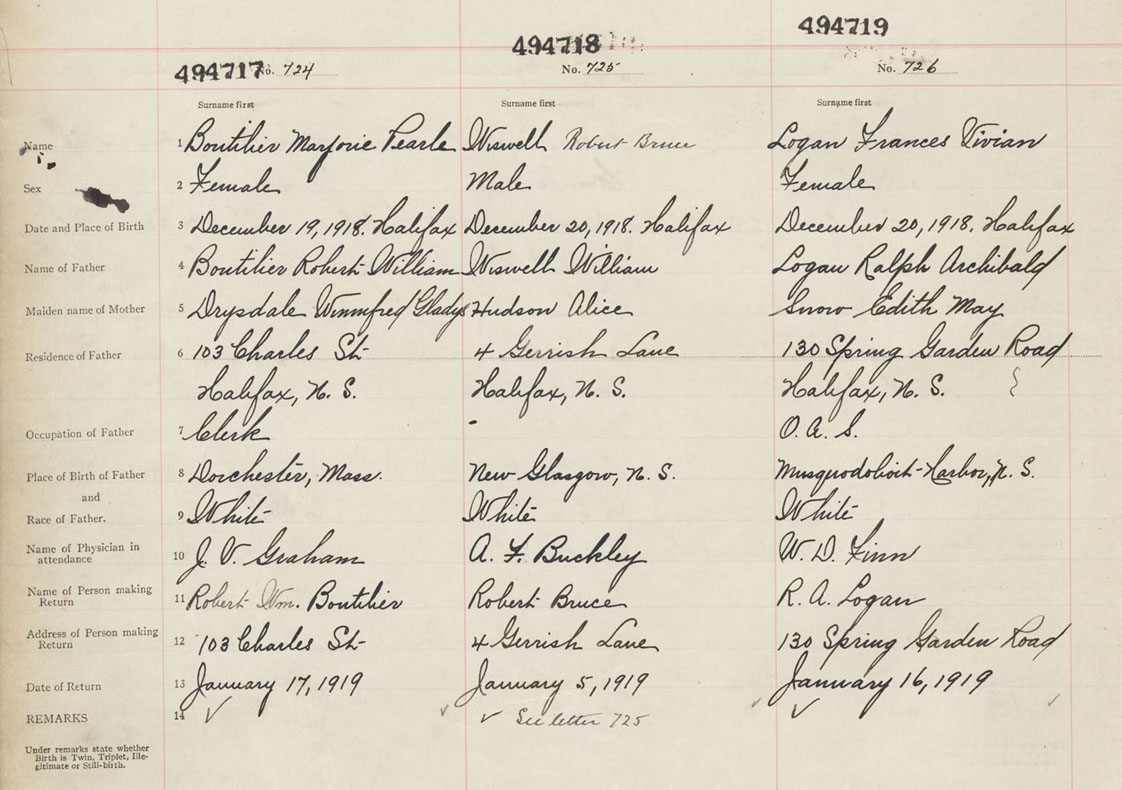 494717 494718 494719
No. 724 No. 725 No. 726
Surname first Surname first Surname first
Name 1 Boutilier Marjorie Pearle Wiswell Robert Bruce Logan Frances Vivian
Sex 2 Female Male Female
Date and Place of Birth 3 December 19, 1918. Halifax December 20, 1918. Halifax December 20, 1918. Halifax
Name of Father 4 Boutilier Robert William Wiswell William Logan Ralph Archibald
Maiden name of Mother 5 Drysdale Winnifred Gladys Hudson Alice Snow Edith May
Residence of Father 6 103 Charles St 4 Gerrish Lane 130 Spring Garden Road
Halifax, N. S. Halifax, N. S. Halifax, N. S.
Occupation of Father 7 Clerk - O. A. S.
Place of Birth of Father 8 Dorchester, Mass. New Glasgow, N. S. Musquodoboit Harbor, N. S.
and
Race of Father. 9 White White White
Name of Physician in
attendance 10 J. V. Graham A. F. Buckley W. D. Finn
Name of Person making
Return 11 Robert Wm. Boutilier Robert Bruce R. A. Logan
Address of Person making
Return 12 103 Charles St 4 Gerrish Lane 130 Spring Garden Road
Date of Return 13 January 17, 1919 January 5, 1919 January 16, 1919
REMARKS 14 See letter 725
Under remarks state whether
Birth is Twin, Triplet, Ille-
gitimate or Still-birth.